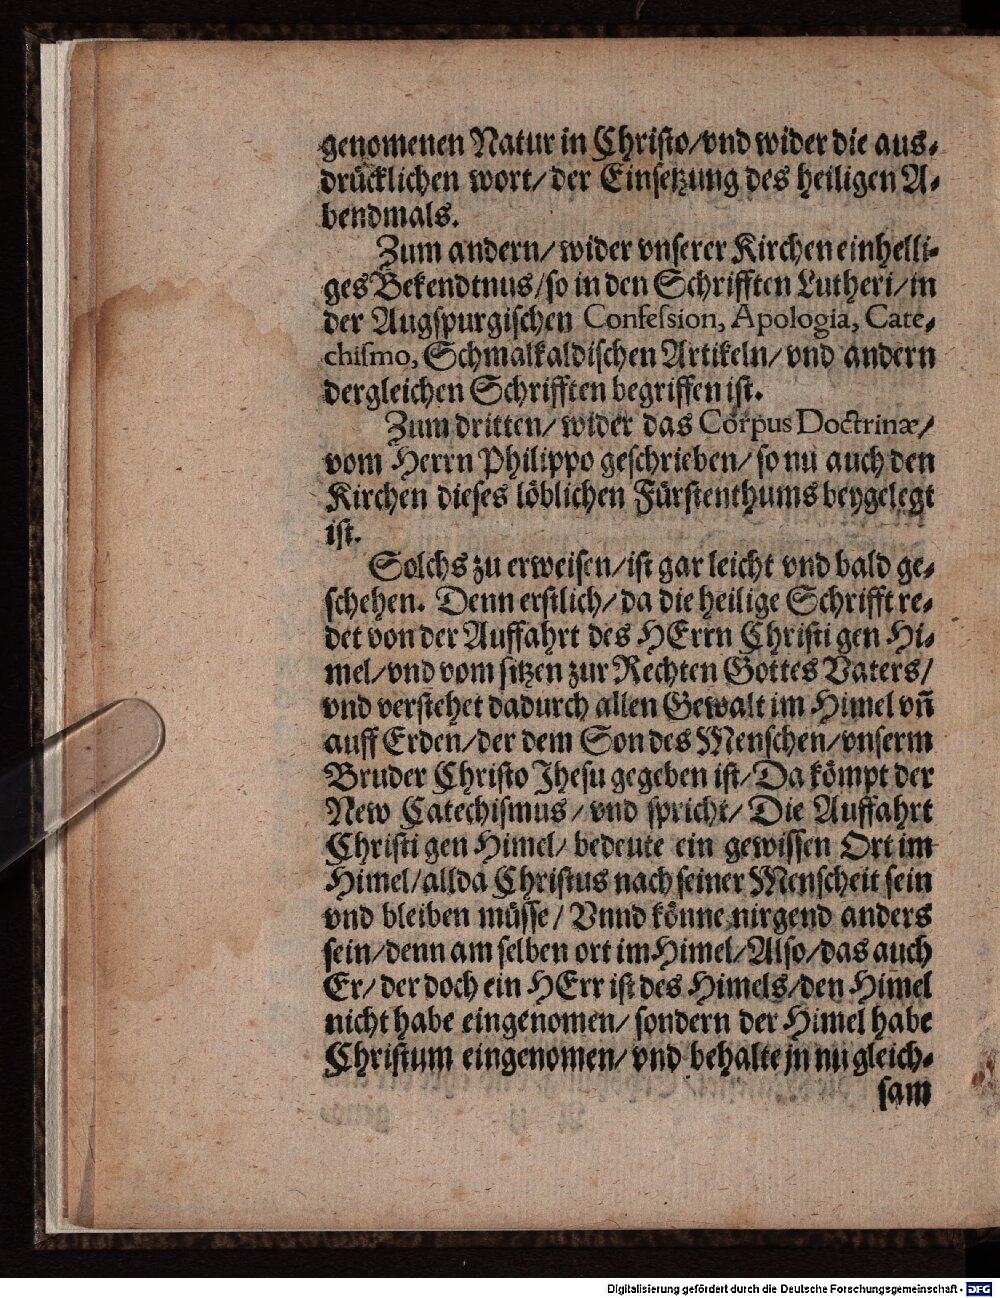 genomenen Natur in Christo/vnd wider die aus⸗
drücklichen wort/der Einsetzung des heiligen A⸗
bendmals.
Zum andern/wider vnserer Kirchen einhelli⸗
ges Bekendtnus/so in den Schrifften Lutheri/in
der Augspurgischen Confeſsion, Apologia, Cate⸗
chiſmo, Schmalkaldischen Artikeln/vnd andern
dergleichen Schrifften begriffen ist.
Zum dritten/wider das Corpus Doctrinæ/
vom Herrn Philippo geschrieben/so nu auch den
Kirchen dieses löblichen Fürstenthums beygelegt
ist.
Solchs zu erweisen/ist gar leicht vnd bald ge⸗
schehen. Denn erstlich/da die heilige Schrifft re⸗
det von der Auffahrt des HErrn Christi gen Hi⸗
mel/vnd vom sitzen zur Rechten Gottes Vaters/
vnd verstehet dadurch allen Gewalt im Himel vñ
auff Erden/der dem Son des Menschen/vnserm
Bruder Christo Jhesu gegeben ist/Da kömpt der
New Catechismus/vnd spricht/Die Auffahrt
Christi gen Himel/bedeute ein gewissen Ort im
Himel/allda Christus nach seiner Menscheit sein
vnd bleiben müsse/Vnnd könne nirgend anders
sein/denn am selben ort im Himel/Also/das auch
Er/der doch ein HErr ist des Himels/den Himel
nicht habe eingenomen/sondern der Himel habe
Christum eingenomen/vnd behalte jn nu gleich⸗
sam
Digitalisierung gefördert durch die Deutsche Forschungsgemeinschaft - DFG